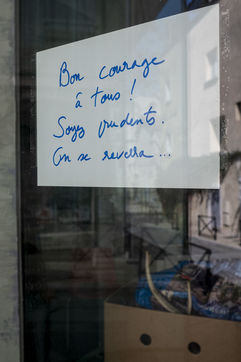 Bon courage
à tous !
Soyez prudents.
On se reverra ...